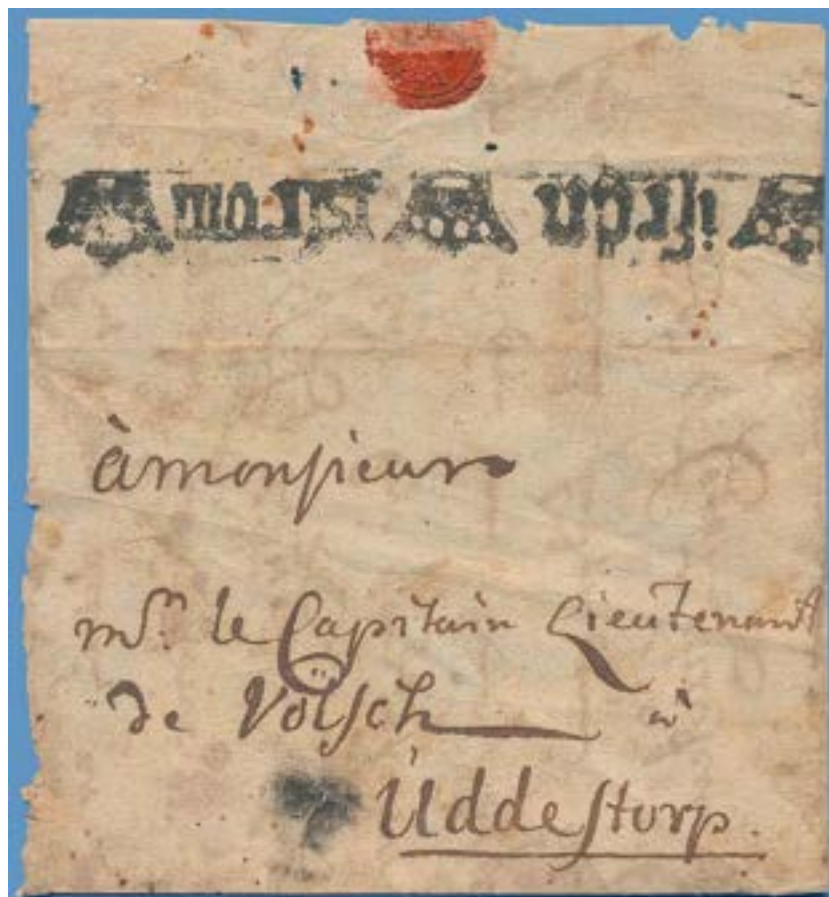 à monsieur
mr. le Capitain Lieutenant
de Völsch à
Uddestorp.